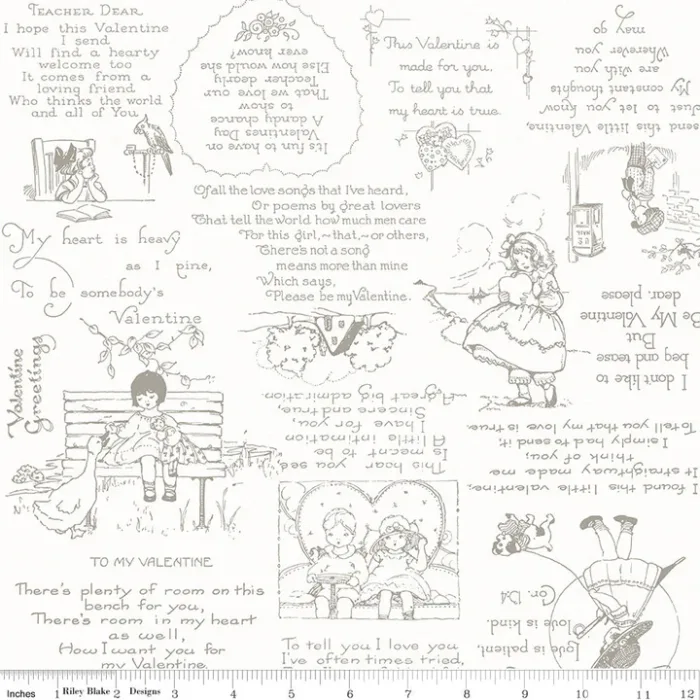 TEACHER DEAR
I hope this Valentine
I send
Will find a hearty
welcome too
It comes from a
loving friend
Who thinks the world
and all of You
It's fun to have on
Valentines Day
A dandy chance
to show
That we love our
Teacher dearly
Else how would she
ever know?
This Valentine is
made for you,
To tell you that
my heart is true.
send this little Valentine,
Just to let you know
My constant thoughts
are with you
Wherever you
may go
Of all the love songs that I've heard,
Or poems by great lovers
That tell the world how much men care
For this girl,~that,~or others,
There's not a song
means more than mine
Which says,
Please be my Valentine.
My heart is heavy
as I pine,
To be somebody's
Valentine
Valentine
Greetings
I dont like to
beg and tease
But
Be My Valentine
dear, please
This you see,
Is meant to be
A little intimation
I have for you,
Sincere and true,
A great big admiration
I found this little valentine;
It straightway made me
think of you;
I simply had to send it,
To tell you that my love is true.
TO MY VALENTINE
There's plenty of room on this
bench for you,
There's room in my heart
as well,
How I want you for
my Valentine
To tell you I love you
I've often times tried,
Love is patient,
love is kind.
Cor. 13:4
Inches 1 Riley Blake 2 Designs 3 4 5 6 7 8 9 10 11 12